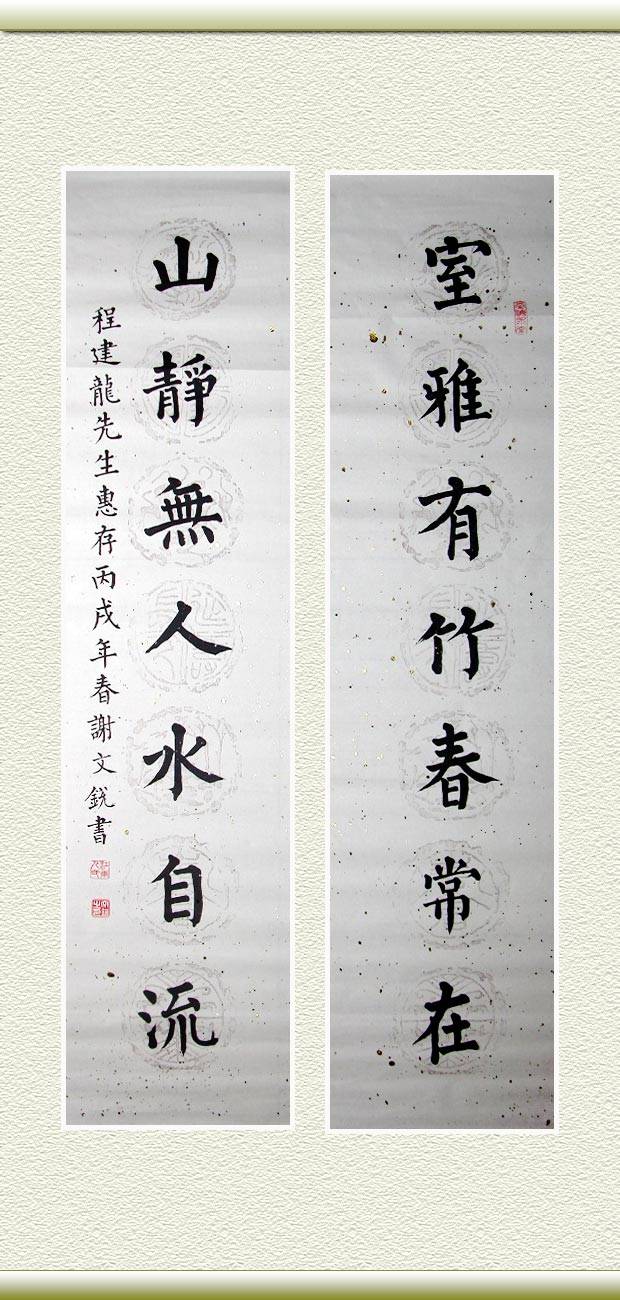 室雅有竹春常在
山靜無人水自流
程建龍先生惠存丙戌年春謝文銳書